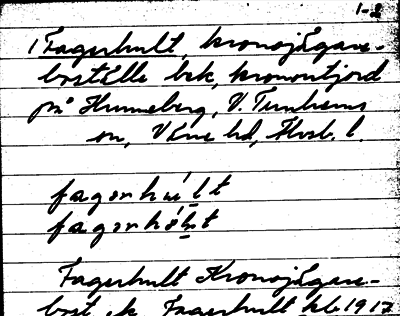 1-2
1 Fagerhult, kronojägare-
boställe bek, kronontjord
på Hunneberg, V. Tunhems
sn, Väne hd, Älvsb. l.
fagerhult
fagerhólt
Fagerhult Kronojägare-
bost. ek Fagerhult kb. 1917